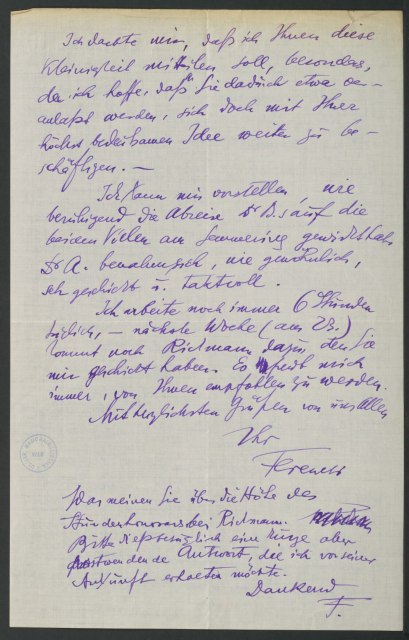 Ich dachte mir, daß ich Ihnen diese
Kleinigkeit mitteilen soll, besonders,
da ich hoffe, daß Sie dadurch etwa ver-
anlaßt werden, sich doch mit Ihrer
höchst bedeutsamen Idee weiter zu be-
schäftigen. —
Ich kann mir vorstellen, wie
beruhigend die Abreise Dr B.s auf die
beiden Vielen am Semmering gewirkt hat.
Dr A. benahm sich, wie gewöhnlich,
sehr geschickt u. taktvoll.
Ich arbeite noch immer 6 Stunden
täglich, — nächste Woche (am 23.)
kommt noch Rickmann dazu, den Sie
mir geschickt haben. Es freut mich
immer, von Ihnen empfohlen zu werden.
Mit herzlichsten Grüßen von uns allen
Ihr
Ferenczi
Was meinen Sie über die Höhe des
Stundenhonorars bei Rickmann.
Bitte diesbezüglich eine kurze aber
postwendende Antwort, die ich vor seiner
Ankunft erhalten möchte.
Dankend
F.